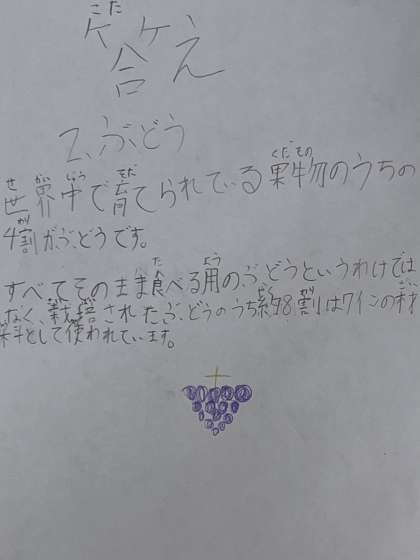 答え
2、ぶどう
世界中で育てられている果物のうちの
4割がぶどうです。
すべてそのまま食べる用のぶどうというわけでは
なく、栽培されたぶどうのうち約8割はワインの材
料として使われています。